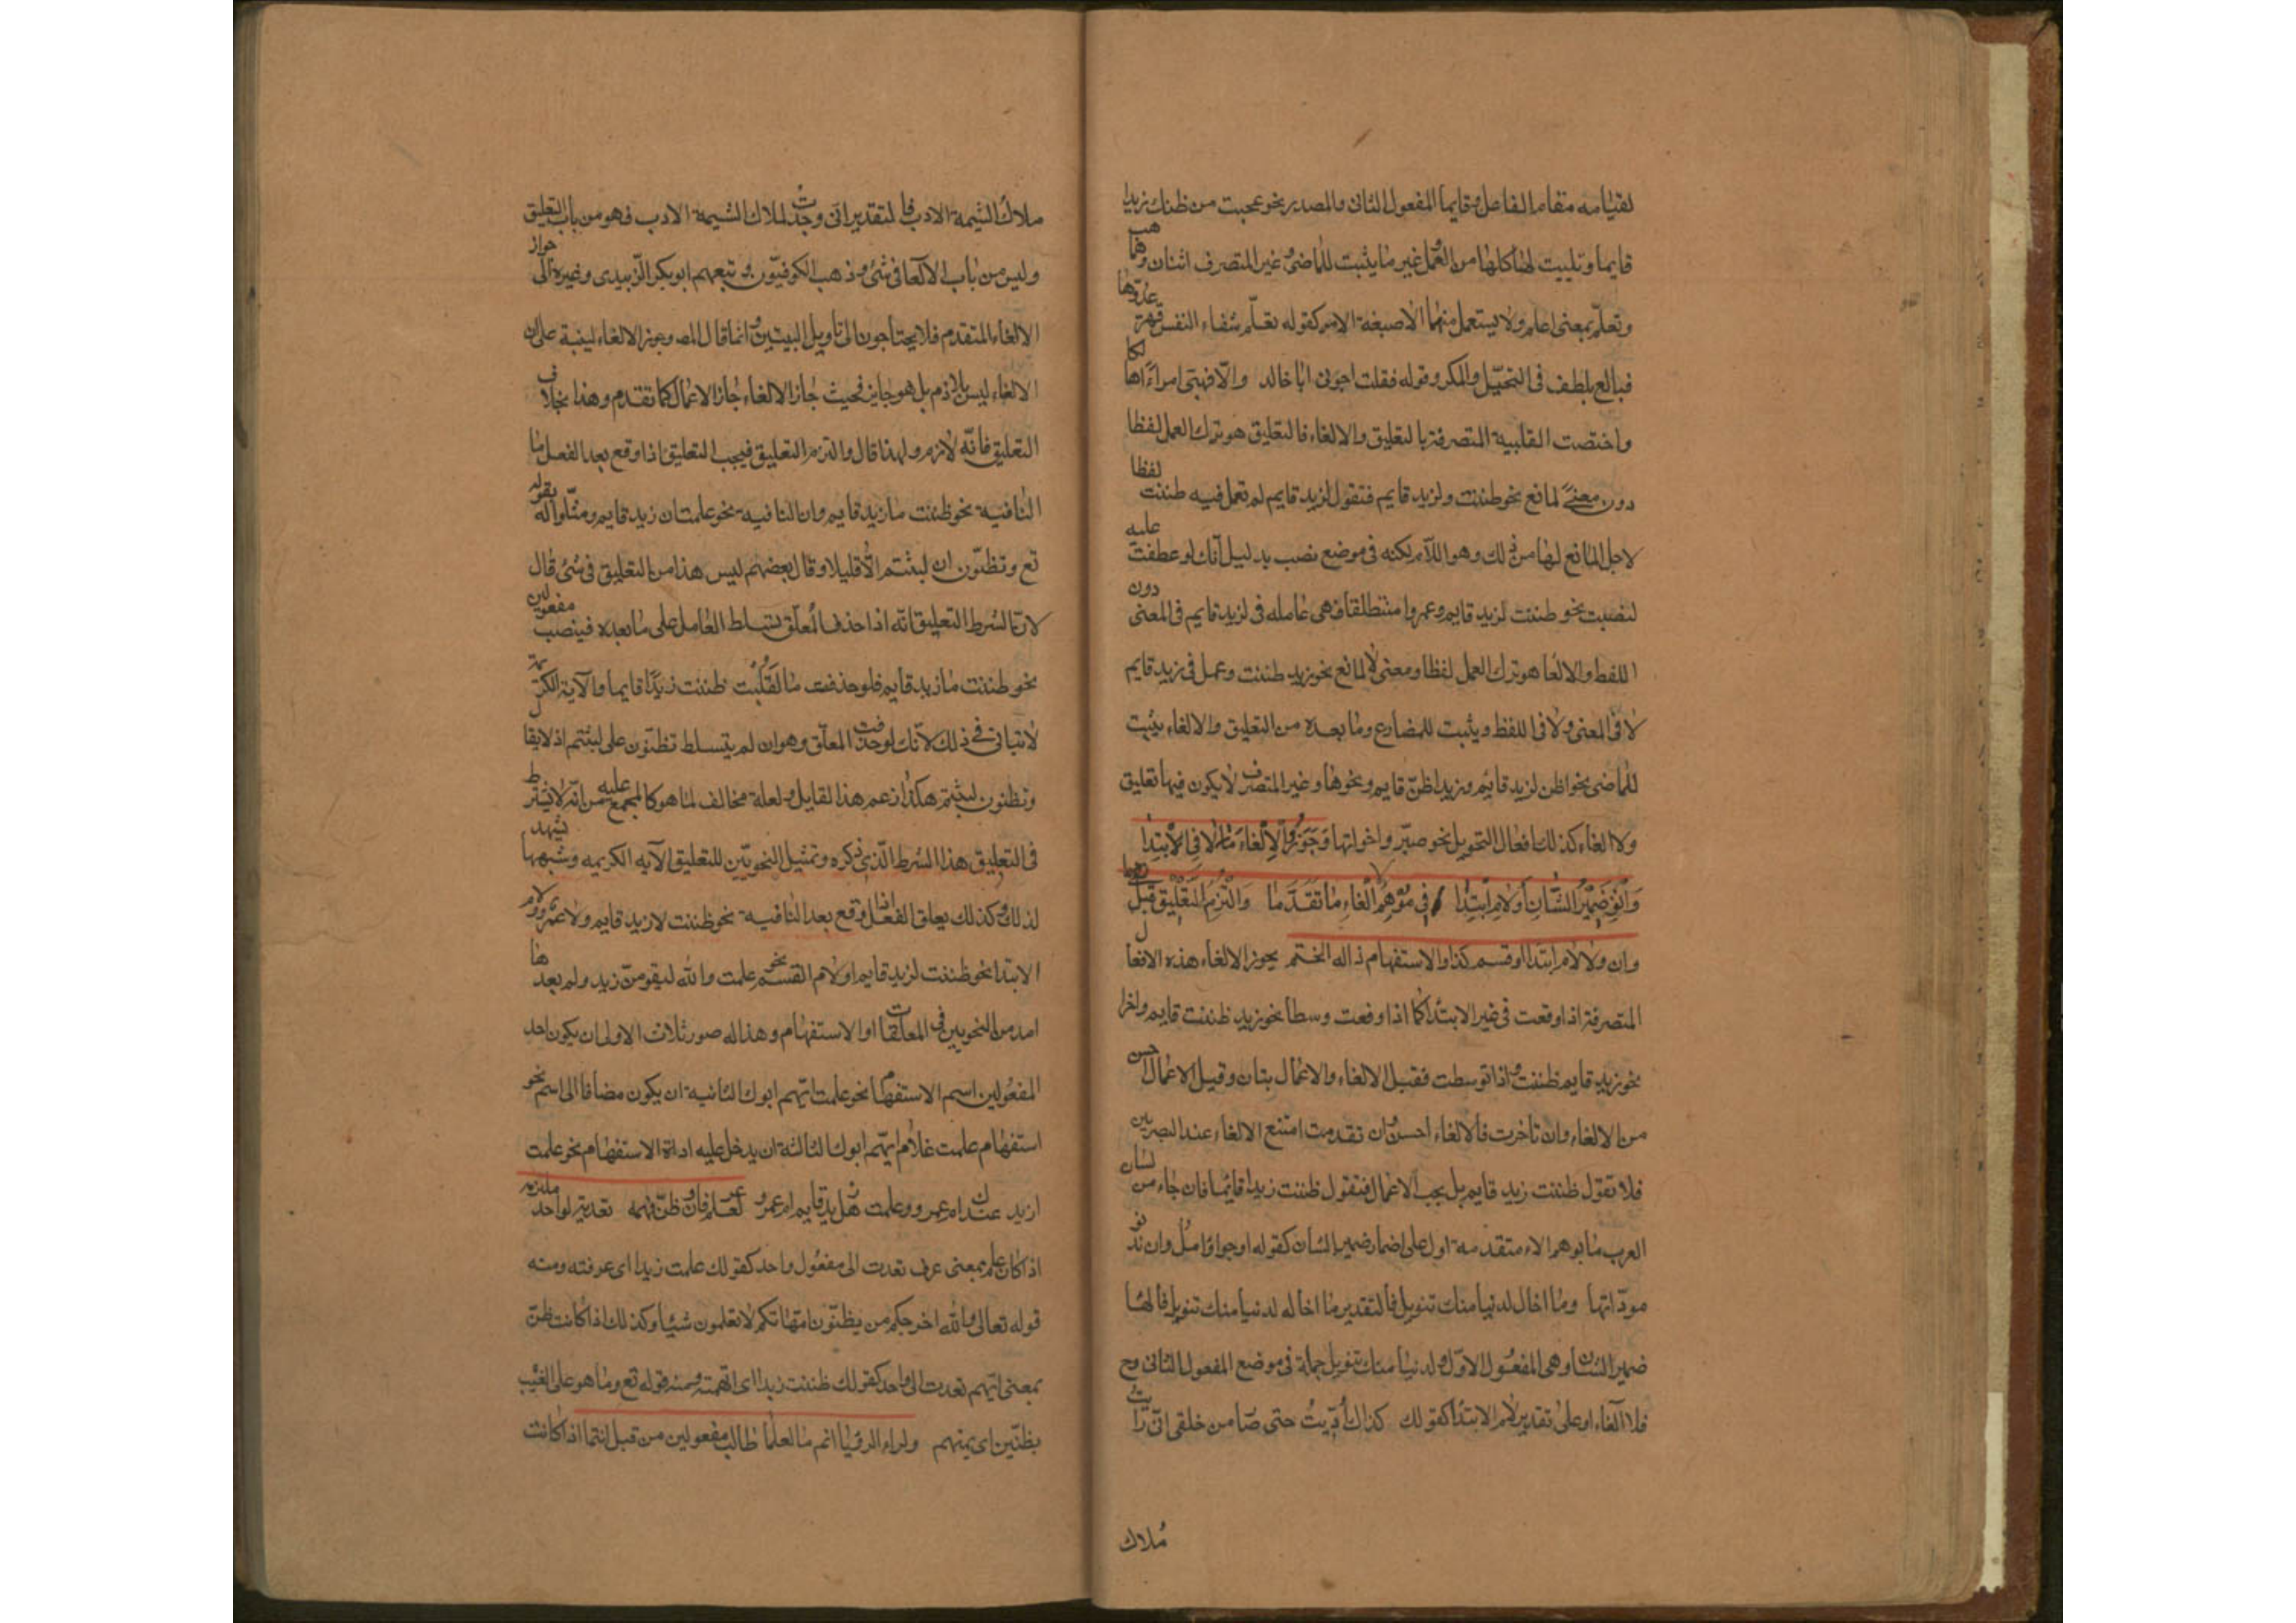 لقيامه مقام الفاعل وقايما المفعول الثانى والمصدر نحو عجبت من ظنك زيدا
قايما ويثبت لهاكلها من العمل غير مايثبت للماضى وغير المتصرف اثنان وهما هب
وتعلّم بمعنى اعلم ولا يستعمل منهما الا صيغة الامر كقوله تعلّم شفاء النفس قهر عدوّها
فبالغ بلطف فى التحيّل والمكر وقوله فقلت اجرنى ابا خالد والّا فهبنى امرأً هالكا
واختصت القلبية المتصرفة بالتعليق والالغاء فالتعليق هو ترك العمل لفظا
دون معنىً لمانع نحو ظننت ولزيد قايم فتقول لزيد قايم لم تعمل فيه ظننت لفظا
لاجل المانع لها من ذلك وهو اللام لكنه فى موضع نصب بدليل انك لو عطفت عليه
لنصبت نحو ظننت لزيد قايم وعمروا منطلقا فهى عامله فى لزيد قايم فى المعنى دون
اللفظ والالغا هو ترك العمل لفظا ومعنى لا لمانع نحو زيد ظننت وعمل فى زيد قايم
لا فى المعنى ولا فى اللفظ ويثبت للمضارع وما بعده من التعليق والالغاء يثبت
للماضى نحو اظن لزيد قايم وزيدا ظنّ قايم ونحوها وغير المتصرف لا يكون فيها تعليق
ولا الغاء كذلك افعال التحويل نحو صيّر واخواتها وَجَوِّزُوا الاِلْغاءَ لا فى الاِبْتِدَا
وَانْوِ ضَمِيْرَ الشَّانِ أَوْلامَ ابْتِدَا فى مُوْهِمِ الْغَاءِ مَا تَقَدَّمَا وَالْتُزِمَ التَّعْلِيْقُ قَبْلَ
وان ولا لام ابتدا اوقسم كذا والاستفهام ذا له انحتم يجوز الالغاء هذه الافعال
المتصرفة اذا وقعت فى غير الابتدا كما اذا وقعت وسطا نحو زيد ظننت قايم واخرا
نحو زيد قايم ظننت واذا توسطت فقيل الالغاء والاعمال سيان وقيل الاعمال احسن
من الالغاء وان تاخرت فالالغاء احسن وان تقدمت امتنع الالغاء عند البصريين
فلا تقول ظننت زيد قايم بل يجب الاعمال فتقول ظننت زيدا قائما فان جاء من لسان
العرب ما يوهم الا متقدمه اول على اضمار ضمير الشان كقوله ارجوا وامل وان تدنو
مودّاتها وما اخال لدنيا منك تنويل فالتقدير ما اخاله لدنيا منك تنويل فالها
ضمير الشان وهى المفعول الاول ولدنيا منك تنويل جملة فى موضع المفعول الثانى وح
فلا الغاء اوعلى تقدير لام الابتدا كقولك كذاك أُدِّبْتُ حتى صار من خلقى انّى رايت
مُلاك
ملاك الشيمة الادب فالتقدير انى وجدت لملاك الشيمة الادب فهو من باب التعليق
وليس من باب الالغا فى شئ وذهب الكوفيّون وتبعهم ابوبكر الزّبيدى وغيره الى جواز
الالغاء المتقدم فلا يحتاجون الى تاويل البيتين وانما قال المص وجوز الالغاء لينبه على ان
الالغاء ليس بلازم بل هو جايز فحيث جاز الالغاء جاز الاعمال كما تقدم وهذا بخلاف
التعليق فانّه لازم ولهذا قال والتزم التعليق فيجب التعليق اذا وقع بعد الفعل ما
النافية نحو ظننت ما زيد قايم وان النافية نحو علمت ان زيد قايم ومثلوا له بقوله
تع وتظنّون ان لبثتم الّا قليلا وقال بعضهم ليس هذا من التعليق فى شئ قال
لان الشرط التعليق انّه اذا حذف المعلّق تسلط العامل على ما بعده فينصب مفعولين
نحو ظننت ما زيد قايم فلو حذفت ما لقلت ظننت زيدًا قايما والآية الكريمة
لا يتاتى فى ذلك لانك لوحذفت المعلّق وهو ان لم يتسلط تظنّون على لبثتم اذ لا يقال
وتظنون لبثتم هكذا زعم هذا القايل ولعله مخالف لما هو كالمجمع عليه من انه لا يشترط
فى التعليق هذا الشرط الّذى ذكره وتمثيل النحويّين للتعليق الآيه الكريمه وشبهها يشهد
لذلك وكذلك يعلق الفعل اذا وقع بعد لا النافيه نحو ظننت لا زيد قايم ولا عمرو ولام
الابتدا نحو ظننت لزيد قايم او لام القسم نحو علمت والله ليقومنّ زيد ولم يعدها
احد من النحويين فى المعلقات او الاستفهام وهذا له صور ثلاث الاولى ان يكون احد
المفعولين اسم الاستفهام نحو علمت ايّهم ابوك الثانية ان يكون مضافا الى اسم نحو
استفهام علمت غلام ايّهم ابوك الثالثة ان يدخل عليه اداة الاستفهام نحو علمت
ازيد عندك ام عمرو وعلمت هل زيد قايم ام عمرو لعلم عرفان وظنّ تهمه تعدية لواحد ملتزمه
اذا كان علم بمعنى عرف تعدت الى مفعول واحد كقولك علمت زيدا اى عرفته ومنه
قوله تعالى والله اخرجكم من بظون امّهاتكم لا تعلمون شيئا وكذلك اذا كانت ظنّ
بمعنى اتّهم تعدت الى واحد كقولك ظننت زيدا اى اتّهمته ومنه قوله تع وما هو على الغيب
بظنّين اى بمتهم ولراء الرؤيا انم ما لعلما طالب مفعولين من قبل انتما اذا كانت